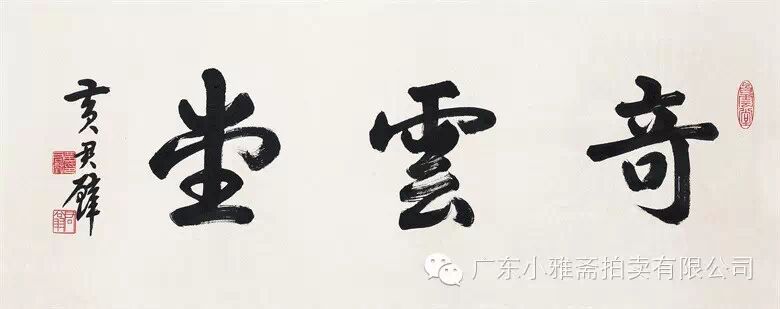 奇雲堂
黄君璧
广东小雅斋拍卖有限公司